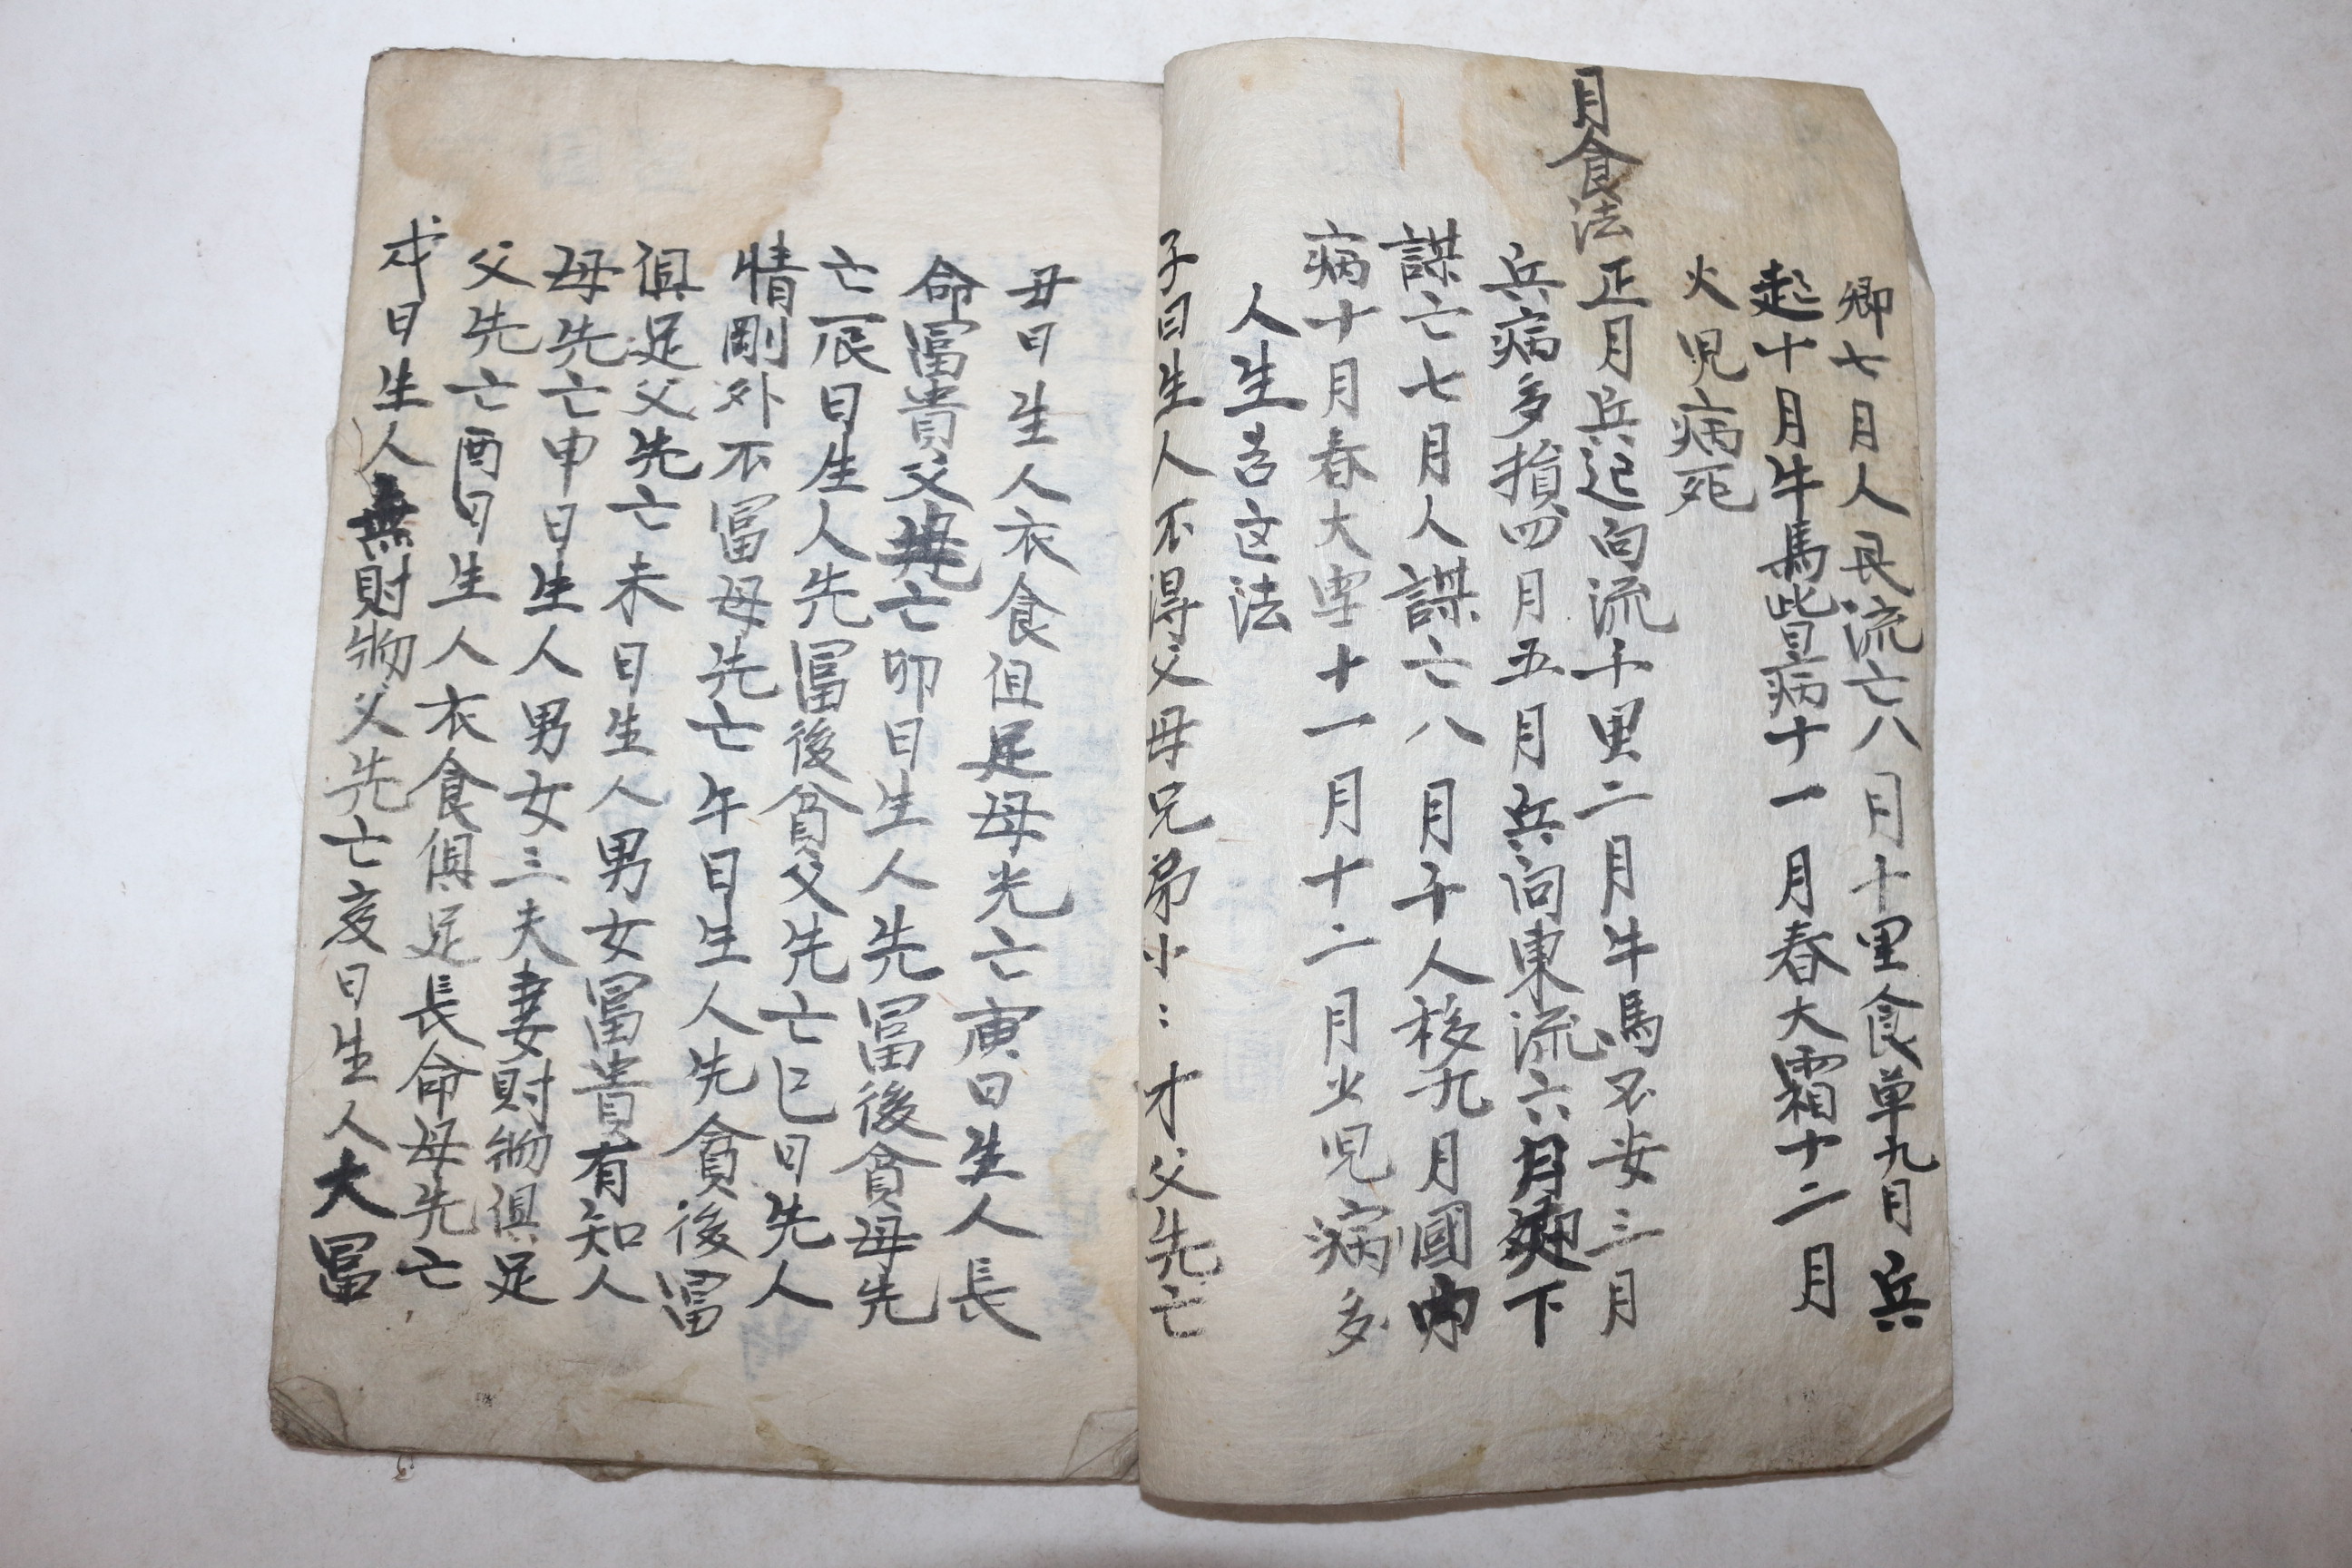 卿七月人民流亡八月十里食单九月兵
起十月牛馬皆病十一月春大霜十二月
火児病死
月食法正月兵起向流千里二月牛馬不安三月
兵病多損四月五月兵向東流六月 下
謀亡七月人謀亡八月千人移九月國内
病十月春大 十一月十二月火児病多
人生吉凶法
子日生人不得父母兄弟小〻才父先亡
丑日生人衣食俱足母先亡寅日生人長
命冨貴父母亡卯日生人先冨後貧母先
亡辰日生人先冨後貧父先亡巳日先人
情剛外不冨母先亡午日生人先貧後冨
俱足父先亡未日生人男女冨貴有知人
母先亡申日生人男女三夫妻財物俱足
父先亡酉日生人衣食俱足長命母先亡
戌日生人無財物父先亡亥日生人大冨